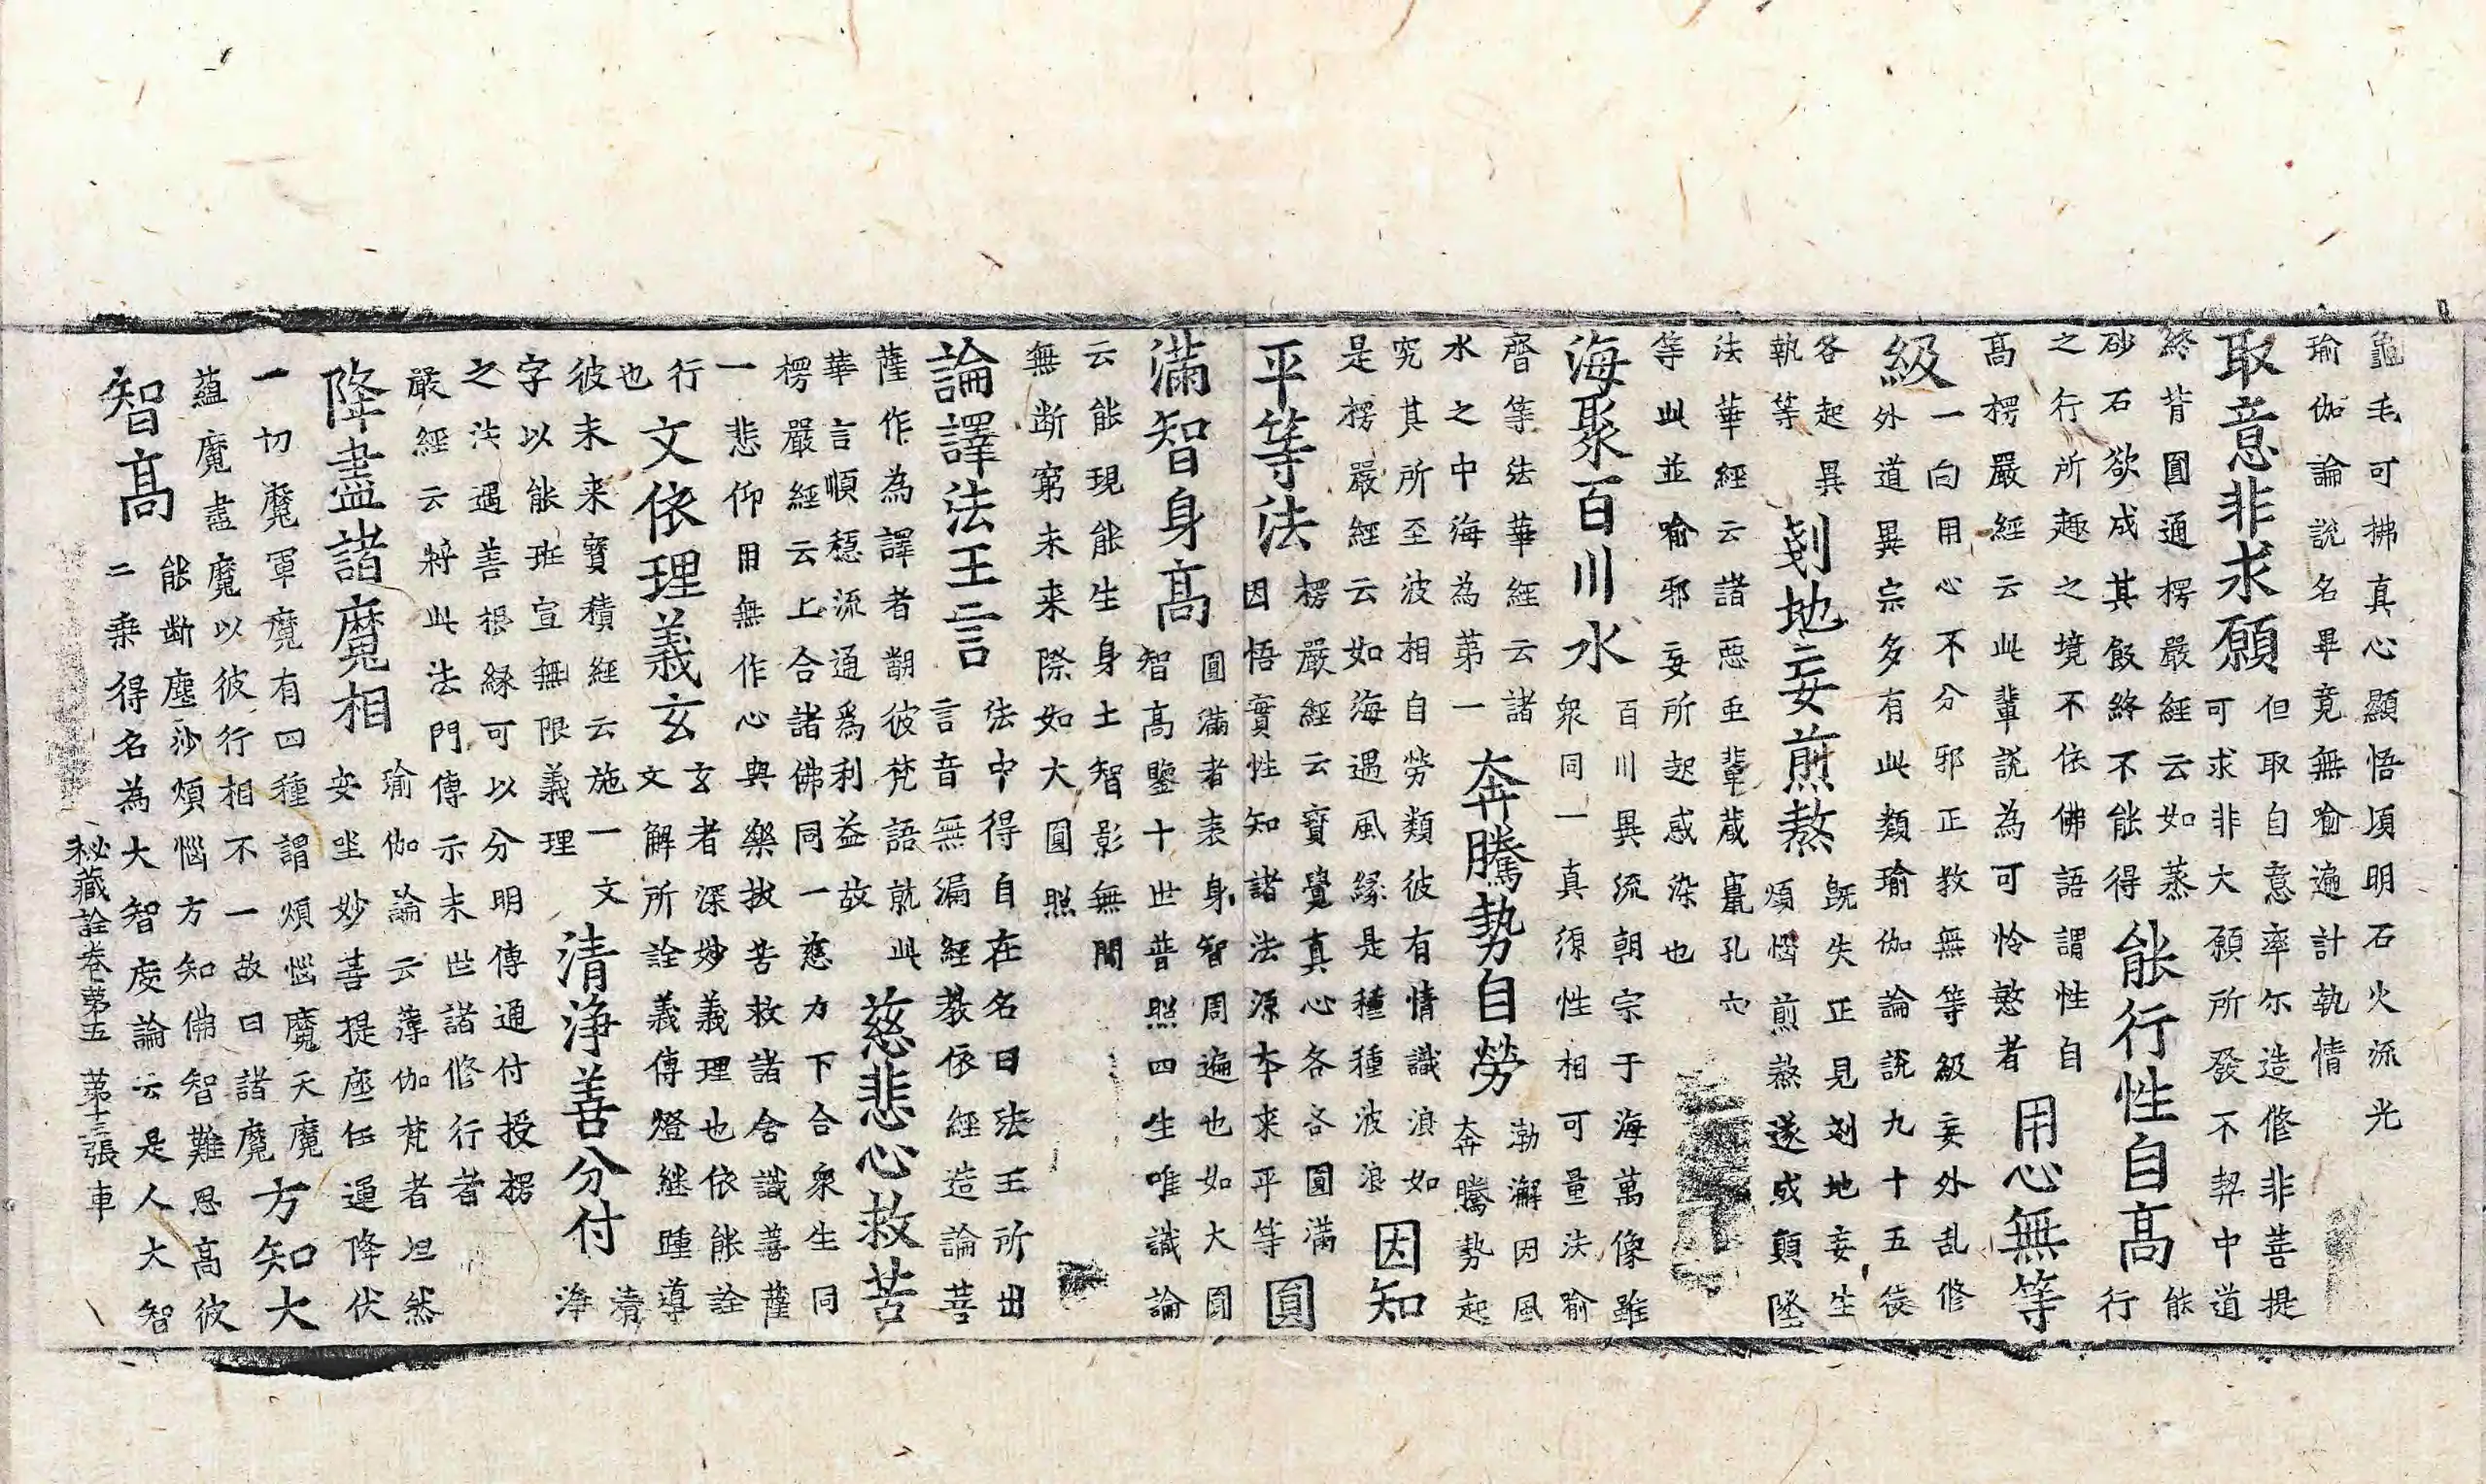 龜毛可拂真心顯悟頃明石火流光
瑜伽論說名畢竟無喻遍計執情
取意非求願
但取自意率尒造修非菩提
可求非大願所發不契中道
終背圓通楞嚴經云如蒸
砂石欲成其飯終不能得
能行性自高
能
行
之行所趣之境不依佛語謂性自
高楞嚴經云此輩說為可怜愍者
用心無等
級
一向用心不分邪正教無等級妄外乱修
外道異宗多有此類瑜伽論說九十五徒
各起異
執等
剗地妄煎熬
既失正見剗地妄生
煩惱煎熬遂或顛墜
法華經云諸惡虫輩蔵竄孔穴
等此並喻邪妄所起惑染也
海聚百川水
百川異流朝宗于海萬像雖
衆同一真須性相可量法喻
齊等法華經云諸
水之中海為第一
奔騰勢自勞
渤澥因風
奔騰勢起
究其所至波相自勞類彼有情識浪如
是楞嚴經云如海遇風緣是種種波浪
因知
平等法
楞嚴經云寶覺真心各各圓滿
因悟實性知諸法源本來平等
圓
滿智身高
圓滿者表身智周遍也如大圓
智高鑒十世普照四生唯識論
云能現能生身土智影無間
無断窮未来際如大圓照
論譯法王言
法中得自在名曰法王所出
言音無漏經教依經造論菩
薩作為譯者翻彼梵語就此
華言順穩流通爲利益故
慈悲心救苦
楞嚴經云上合諸佛同一慈力下合衆生同
一悲仰用無作心與樂拔苦救諸含識菩薩
行
也
文依理義玄
玄者深妙義理也依能詮
文解所詮義傳燈継踵導
彼未来寶積經云施一文
字以能班宣無限義理
清淨善分付
清
淨
之法遇善根緣可以分明傳通付授楞
嚴經云将此法門傳示末世諸修行者
降盡諸魔相
瑜伽論云薄伽梵者坦然
妄坐妙菩提座任運降伏
一切魔軍魔有四種謂煩惱魔天魔
蘊魔盡魔以彼行相不一故曰諸魔
方知大
智高
能断塵沙煩惱方知佛智難思高彼
二乗得名為大智度論云是人大智
秘藏詮卷第五 第十三張 車